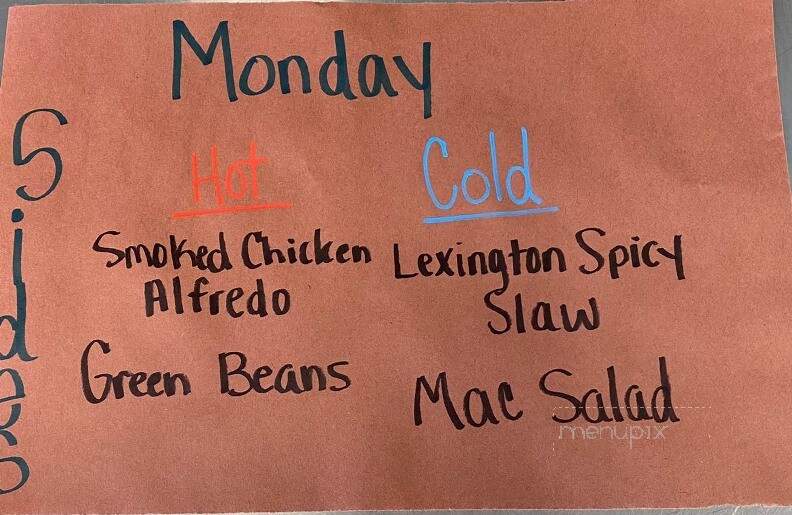 Monday
Sides
Hot
Smoked Chicken
Alfredo
Green Beans
Cold
Lexington Spicy
Slaw
Mac Salad
menupix